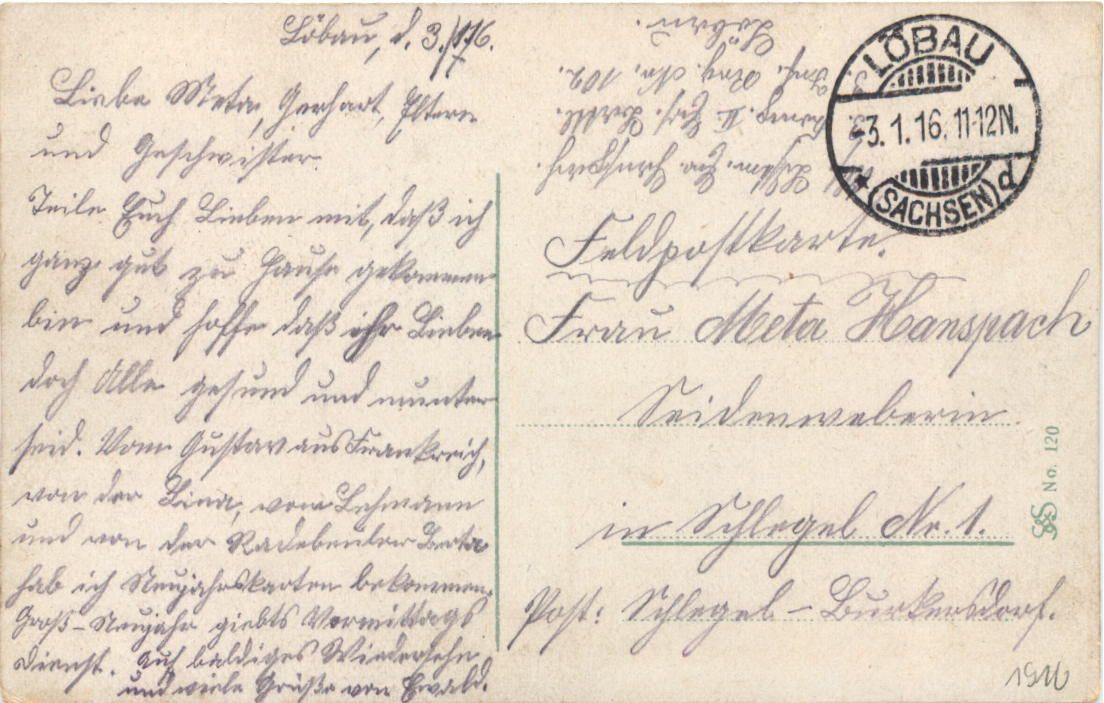 Löbau, d. 3./1.16.
Liebe Meta, Gerhart, Eltern
und Geschwister.
Teile Euch Lieben mit, daß ich
ganz gut zu Hause gekommen
bin und hoffe daß ihr Lieben
doch Alle gesund und munter
seid. Vom Gustav aus Frankreich,
von der Lina, vom Lehmann
und von der Radebeuler Berta
hab ich Neujahrskarten bekommen.
Groß-Neujahr giebts Vormittags
Dienst. Auf baldiges Wiedersehn
und viele Grüße von Ewald.
Hanspach
Komp. II Ers. Batl.
Inf. Reg. No. 102.
Löbau.
LÖBAU
-3.1.16. 11-12N.
* (SACHSEN) d
Feldpostkarte.
Frau Meta Hanspach
Seidenweberin
in Schlegel Nr. 1.
Post: Schlegel-Burkersdorf.
No. 120
1916